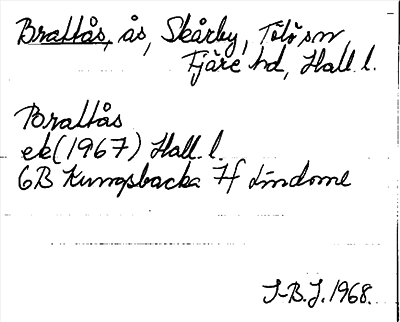 Brattås, ås, Skårby, Tölö sn
Fjäre hd, Hall. l.
Brattås
ek (1967) Hall. l.
6B Kungsbacka 7f Lindome
I-B.J. 1968.